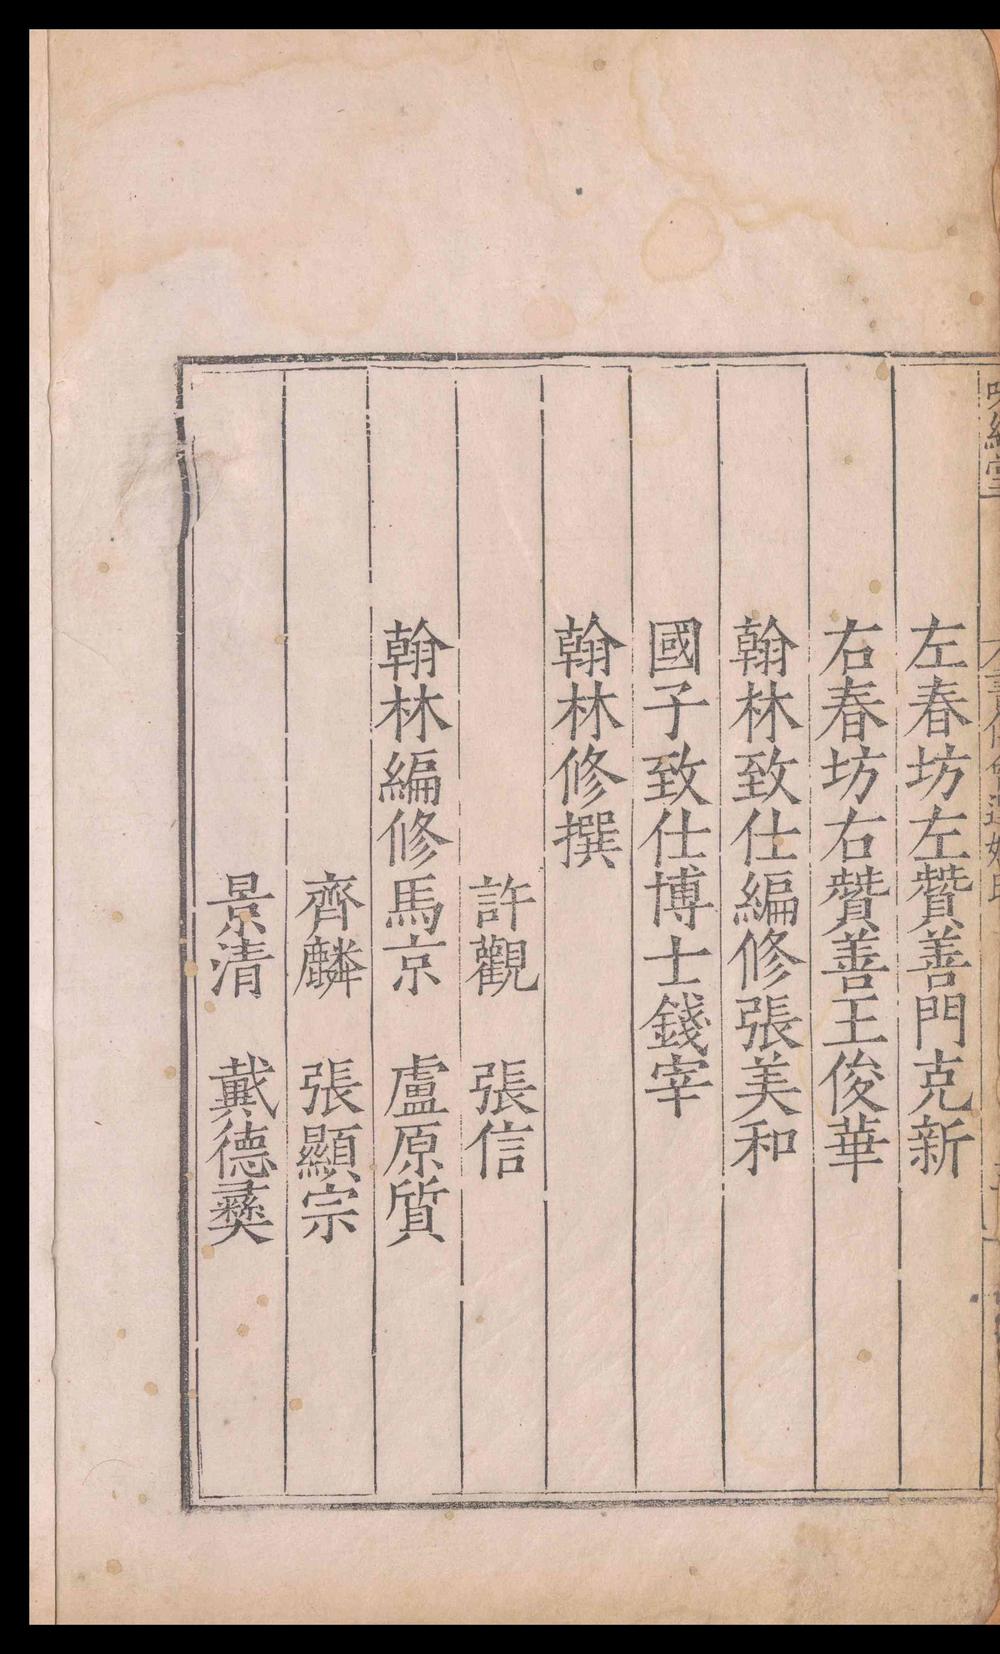 左春坊左贊善門克新
右春坊右贊善王俊華
翰林致仕編修張美和
國子致仕博士錢宰
翰林修撰
許觀　張信
翰林編修馬京　盧原質
齊麟　張顯宗
景清　戴德彝